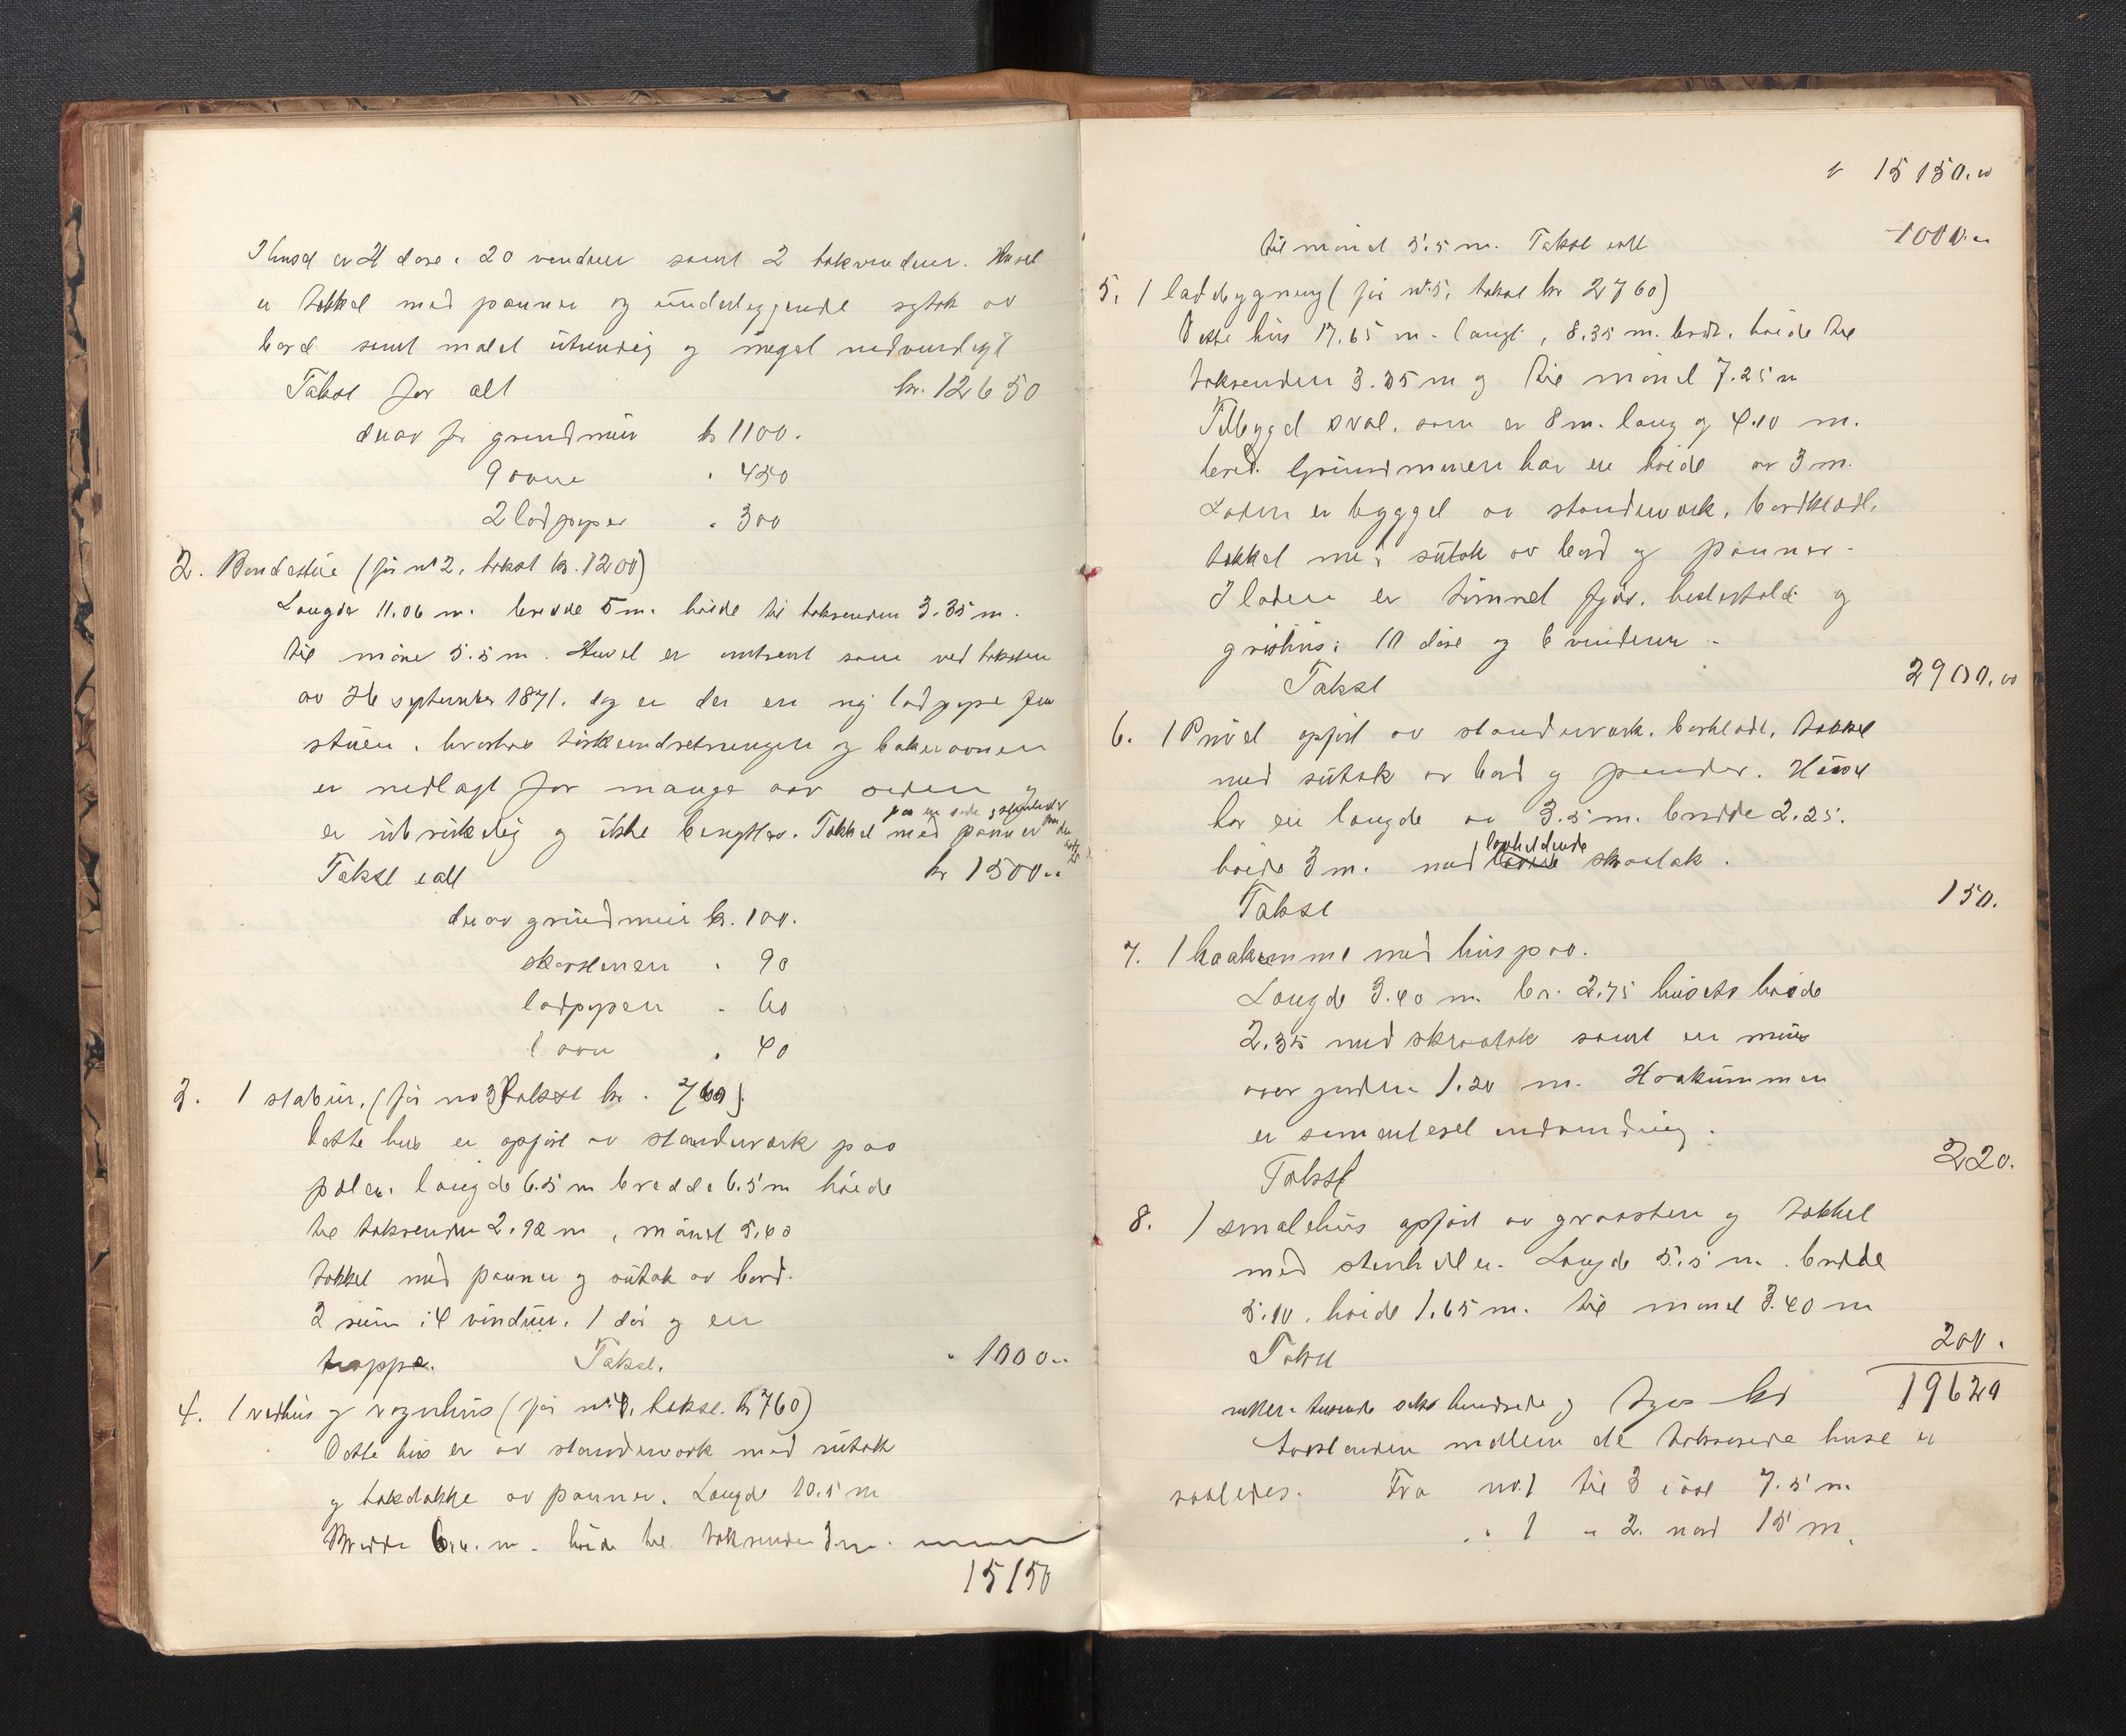 I huset er 21 døre, 20 vinduer samt 2 takvinduer. Huset
er tækket med panner og underliggende sutak av
bord samt malet utvendig og meget nødvendigt
Takst for alt kr. 12650
derav for grundmur kr 1100.
9 ovne " 450
2 lodpiper " 300
2. Bondestue (før nr 2, takst kr. 1200)
Længde 11.06 m. bredde 5 m. høide til takrenden 3.35 m.
til møne 5.5 m. Huset er omtrent som ved taksten
av 26 september 1871. dog er der en ny lodpipe fra
stuen, hvorhos tørkeindretningen og bakerovnen
er nedlagt for mange aar siden og
paa en side,
er ubrukelig og ikke benyttes. Tækket med panner
Takst i alt kr 1500..
derav grundmur kr. 100.
skorstenen " 90
lodpipen " 60
1 ovn " 40
3. 1 stabur, (før no 3 takst kr. 760).
Dette hus er opført av standerverk paa
pæler. længde 6.5 m bredde 6.5 m høide
til takrenden 2.92 m, mønet 5.40
tækket med panner og sutak av bord.
2 rum, 4 vinduer, 1 dør og en
trappe. Takst. " 1000..
4. 1 vedhus og vognhus (før nr. 4, takst. kr 760)
Dette hus er av standerverk med sutak
og takdække av panner. Længde 10.5 m
Bredde m. høide til takrenden 3 m.
15150
15150.00
til mønet 5.5 m. Takst i alt 1000.00
5. 1 ladebygning (før nr. 5, takst kr 2760)
Dette hus 17.65 m. langt, 8.35 m. bredt, høide til
takrenden 3.35 m og til mønet 7.25 m
Tilbygd sval, som er 8 m. lang og 4.10 m.
bred. Grundmuren har en høide av 3 m.
Laden er bygget av standerverk, bordklædt,
tækket med sutak av bord og panner.
I laden er tømret fjøs, hestestald og
grishus; 10 døre og 6 vinduer.
Takst 2900.00
6. 1 Privet opført av standerverk, bordklædt, tækket
med sutak av bord og panner. Huset
har en længde av 3.5 m. bredde 2.25.
høide 3 m. med skraatak.
Takst 150.
7. 1 haakumme med hus paa.
Længde 3.40 m. br. 2.75 husets høide
2.35 med skraatak samt en mur
over jorden 1.20 m. Haakummen
er sementeret indvendig.
Takst 220.
8. 1 smalehus opført av graasten og tækket
med stenheller. Længde 5.5 m. bredde
5.10. høide 1.65 m. til mønet 3.40 m
Takst 200.
19620
nitten tusende seks hundrede og tyve kr
Avstanden mellem de takserede huse er
saaledes. Fra nr. 1 til 3 i øst 7.5 m.
" " 1 " 2. nord 15 m.